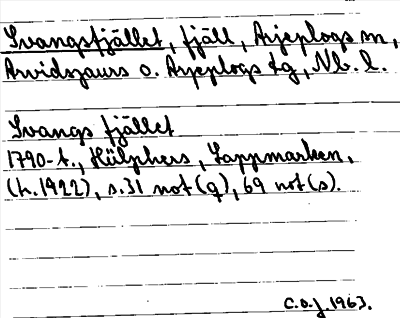 Svangsfjället, fjäll, Arjeplogs sn,
Arvidsjaurs o. Arjeplogs tg, Nb. l.
Svangs fjället
1790-t., Hülphers, Lappmarken,
(h.1922), s.31 not (q), 69 not (s).
C.O.J. 1963.